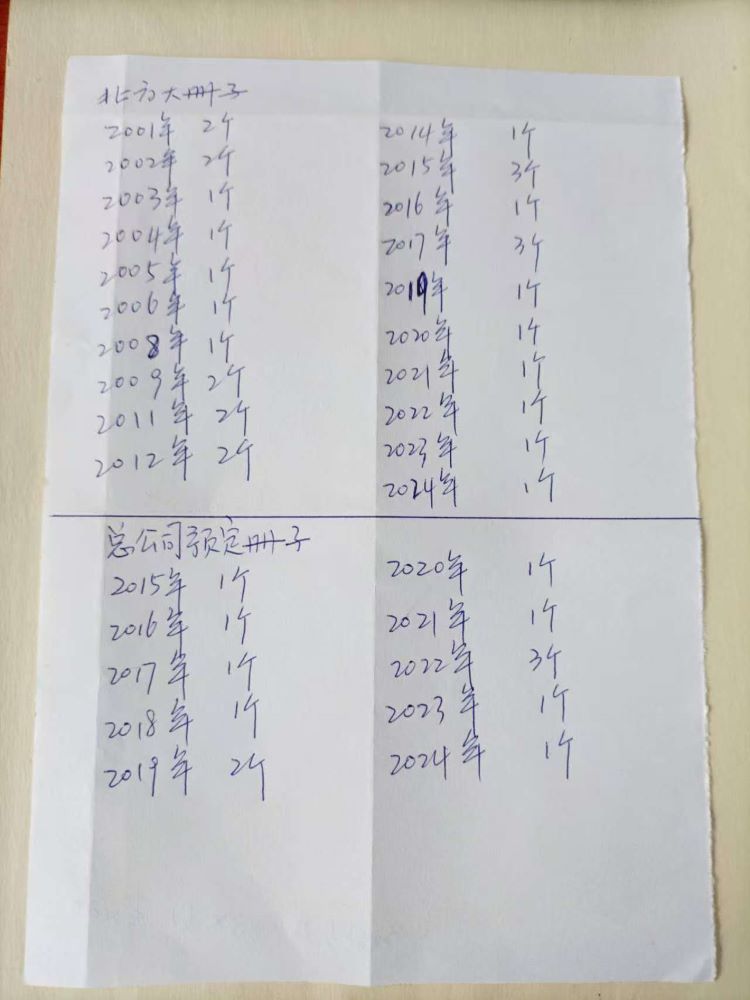 北方大册子
2001年 2个
2002年 2个
2003年 1个
2004年 1个
2005年 1个
2006年 1个
2008年 1个
2009年 2个
2011年 2个
2012年 2个
2014年 1个
2015年 3个
2016年 1个
2017年 3个
2019年 1个
2020年 1个
2021年 1个
2022年 1个
2023年 1个
2024年 1个
总公司预定册子
2015年 1个
2016年 1个
2017年 1个
2018年 1个
2019年 2个
2020年 1个
2021年 1个
2022年 3个
2023年 1个
2024年 1个